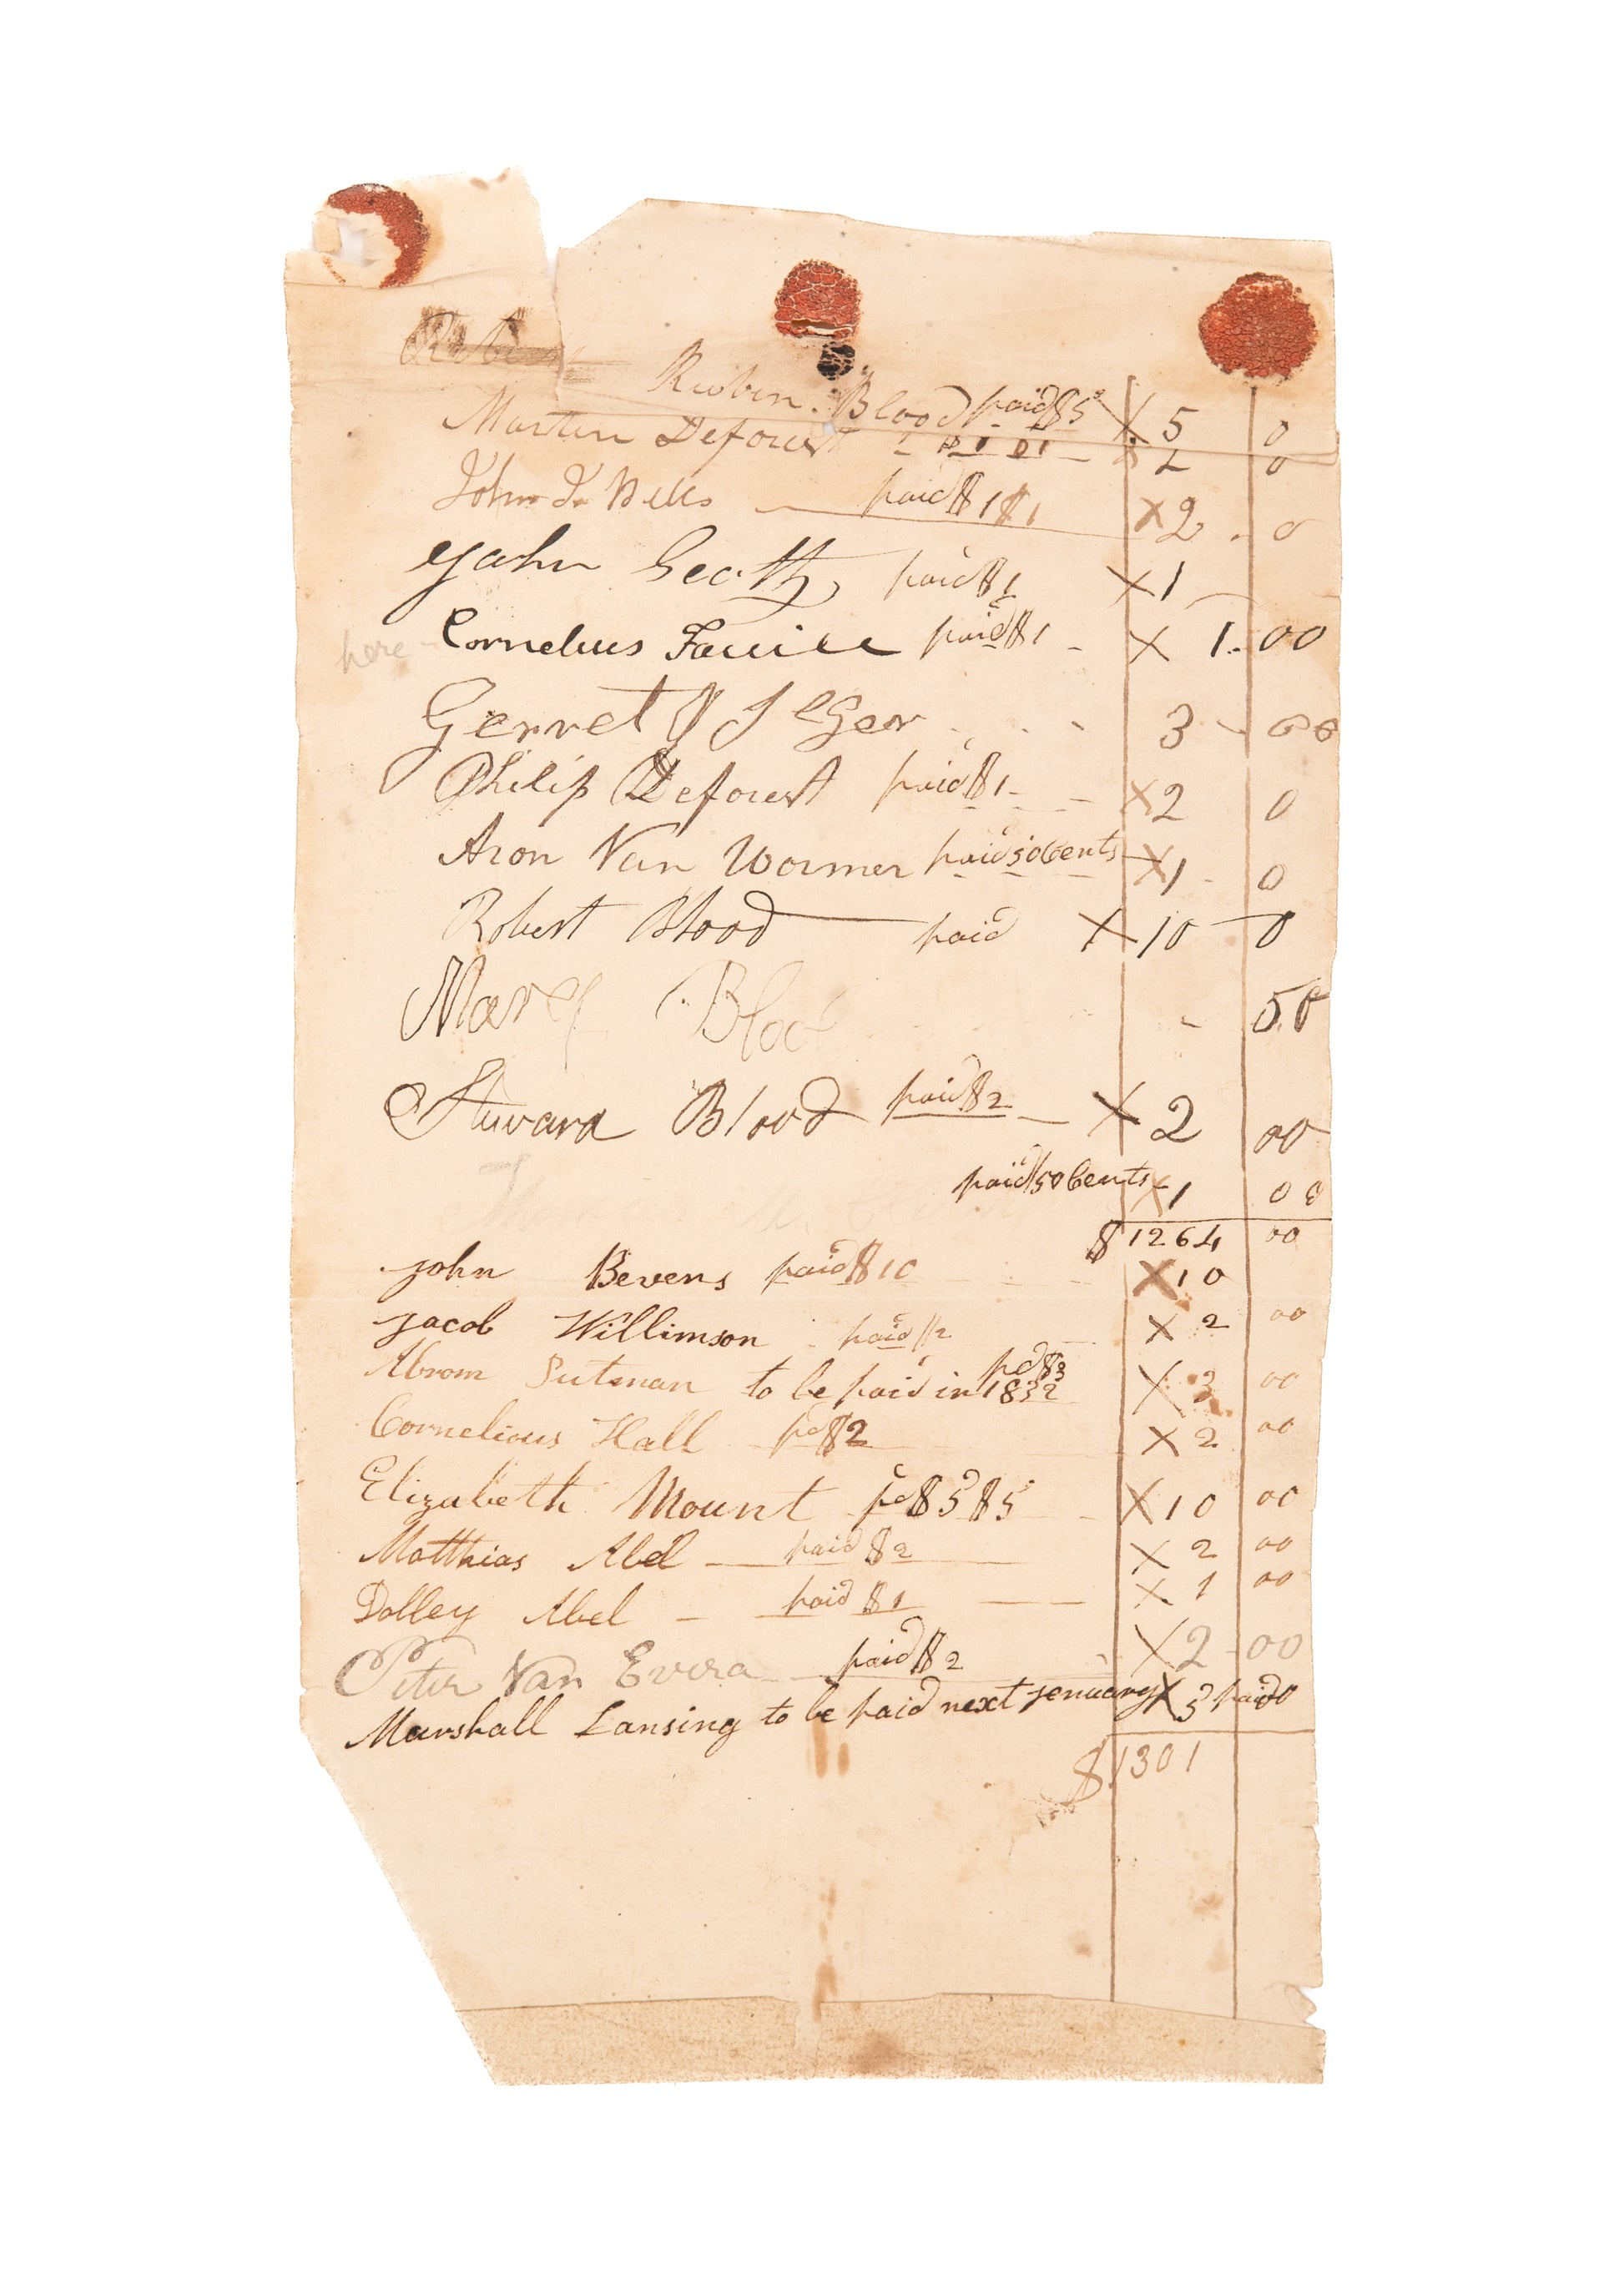 Rubin Blood paid $5 X 5 0
Martin Deforest $1 $1 X 2 0
John F. Wells paid $1 $1 X 2 . 0
John Scott paid $1 X 1
here - Cornelius paid $1 - X 1. 00
Gerret J Seger 3 - 00
Philip Deforest paid $1 - X 2 0
Aron Van Wormer paid 50 Cents X 1 - 0
Robert Blood paid X 10 - 0
Mary Blood - 50
Stuvard Blood paid $2 - X 2 00
paid 50 Cents - X 1 00
$ 1264 00
John Bevens paid $10 X 10
Jacob Willimson paid $2 X 2 00
Abrom Putman to be paid in 1832 pd $3 X 3 00
Cornelious Hall pd $2 X 2 00
Elizabeth Mount pd $5 $5 X 10 00
Matthias Abel paid $2 X 2 00
Dolley Abel - paid $1 X 1 00
Peter Van Evera paid $2 X 2 - 00
Marshall Lansing to be paid next Jenuary X 5 paid 00
$ 1301